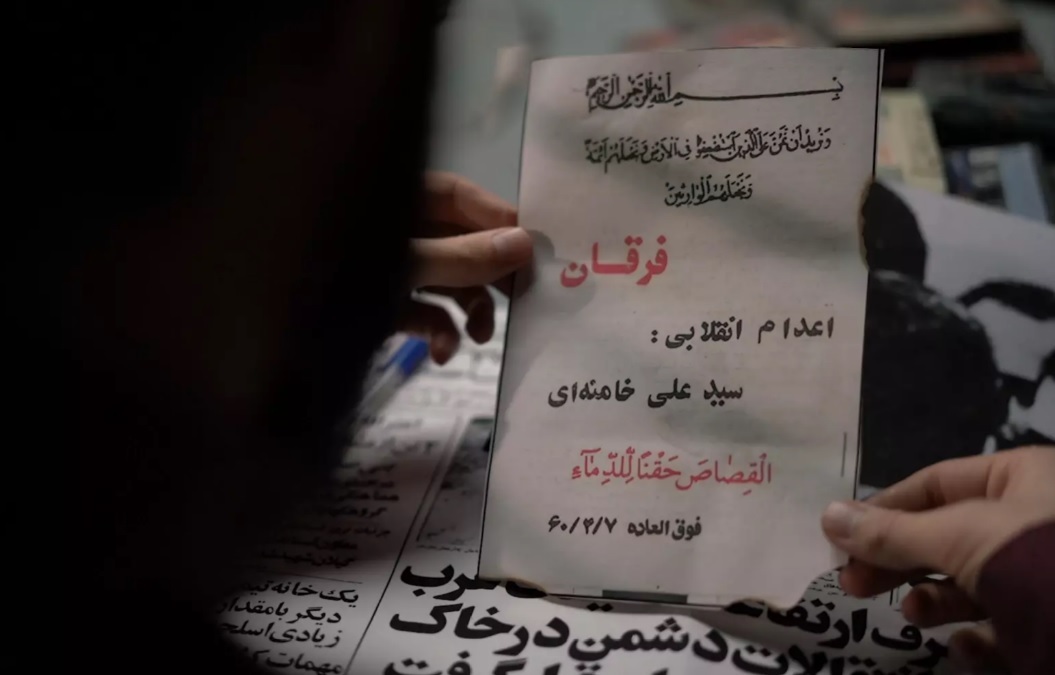 بِسمِ اللهِ الرَّحمنِ الرَّحیمِ
وَنُریدُ اَنْ نَمُنَّ عَلَی الَّذینَ اسْتُضْعِفُوا فِی الْاَرْضِ وَنَجْعَلَهُمْ اَئِمَّةً
وَنَجْعَلَهُمُ الْوارِثینَ
فرقــان
اعدام انقلابی :
سید علی خامنه‌ای
الْقِصٰاصَ حَقْنًا لِلدِّمٰآءِ
فوق العاده ۶۰/۴/۷
یک خانه تیمی
دیگر با مقدار
زیادی اسلحه
مهمات
دشمن در خاک